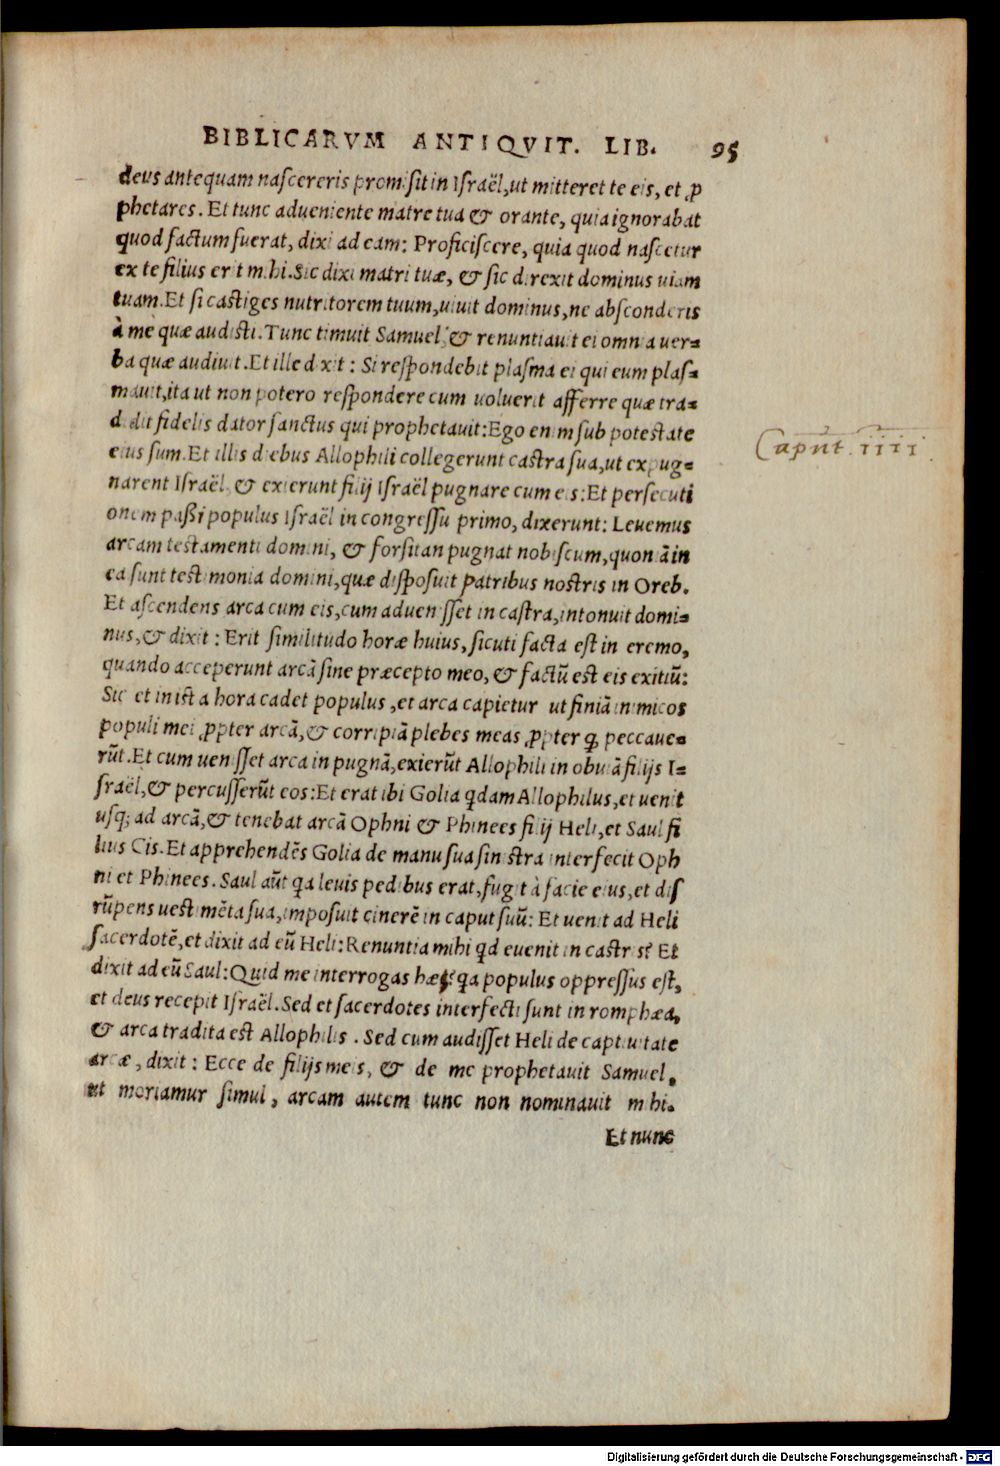 BIBLICARVM ANTIQVIT. LIB. 95
deus antequam nascereris promisit in Israël, ut mitteret te eis, et ꝓ
phetares. Et tunc adueniente matre tua & orante, quia ignorabat
quod factum fuerat, dixi ad eam: Proficiscere, quia quod nascetur
ex te filius erit mihi. Sic dixi matri tuæ, & sic direxit dominus uiam
tuam. Et si castiges nutritorem tuum, uiuit dominus, ne absconderis
à me quæ audisti. Tunc timuit Samuel, & renuntiauit ei omnia uer=
ba quæ audiuit. Et ille dixit: Si respondebit plasma ei qui eum plas=
mauit, ita ut non potero respondere cum uoluerit afferre quæ tra=
didit fidelis dator sanctus qui prophetauit: Ego enim sub potestate
eius sum. Et illis diebus Allophili collegerunt castra sua, ut expug=
Caput iiii
narent Israël, & exierunt filij Israël pugnare cum eis: Et persecuti
onem paßi populus Israël in congressu primo, dixerunt: Leuemus
arcam testamenti domini, & forsitan pugnat nobiscum, quoniā in
ea sunt testimonia domini, quæ disposuit patribus nostris in Oreb.
Et ascendens arca cum eis, cum aduenisset in castra, intonuit domi=
nus, & dixit: Erit similitudo horæ huius, sicuti facta est in eremo,
quando acceperunt arcā sine præcepto meo, & factū est eis exitiū:
Sic et in ista hora cadet populus, et arca capietur ut finiā inimicos
populi mei ꝓpter arcā, & corripiā plebes meas ꝓpter ꝙ peccaue=
rūt. Et cum uenisset arca in pugnā, exierūt Allophili in obuiā filijs I=
sraël, & percusserūt eos: Et erat ibi Golia qdam Allophilus, et uenit
usq; ad arcā, & tenebat arcā Ophni & Phinees filij Heli, et Saul fi
lius Cis. Et apprehendēs Golia de manu sua sinistra interfecit Oph
ni et Phinees. Saul aūt qa leuis pedibus erat, fugit à facie eius, et dis
rūpens uestimēta sua, imposuit cinerē in caput suū: Et uenit ad Heli
sacerdotē, et dixit ad eū Heli: Renuntia mihi qd euenit in castris? Et
dixit ad eū Saul: Quid me interrogas hæc? qa populus oppressus est,
et deus recepit Israël. Sed et sacerdotes interfecti sunt in romphæa,
& arca tradita est Allophilis. Sed cum audisset Heli de captiuitate
arcæ, dixit: Ecce de filijs meis, & de me prophetauit Samuel,
ut moriamur simul, arcam autem tunc non nominauit mihi.
Et nunc
Digitalisierung gefördert durch die Deutsche Forschungsgemeinschaft - DFG